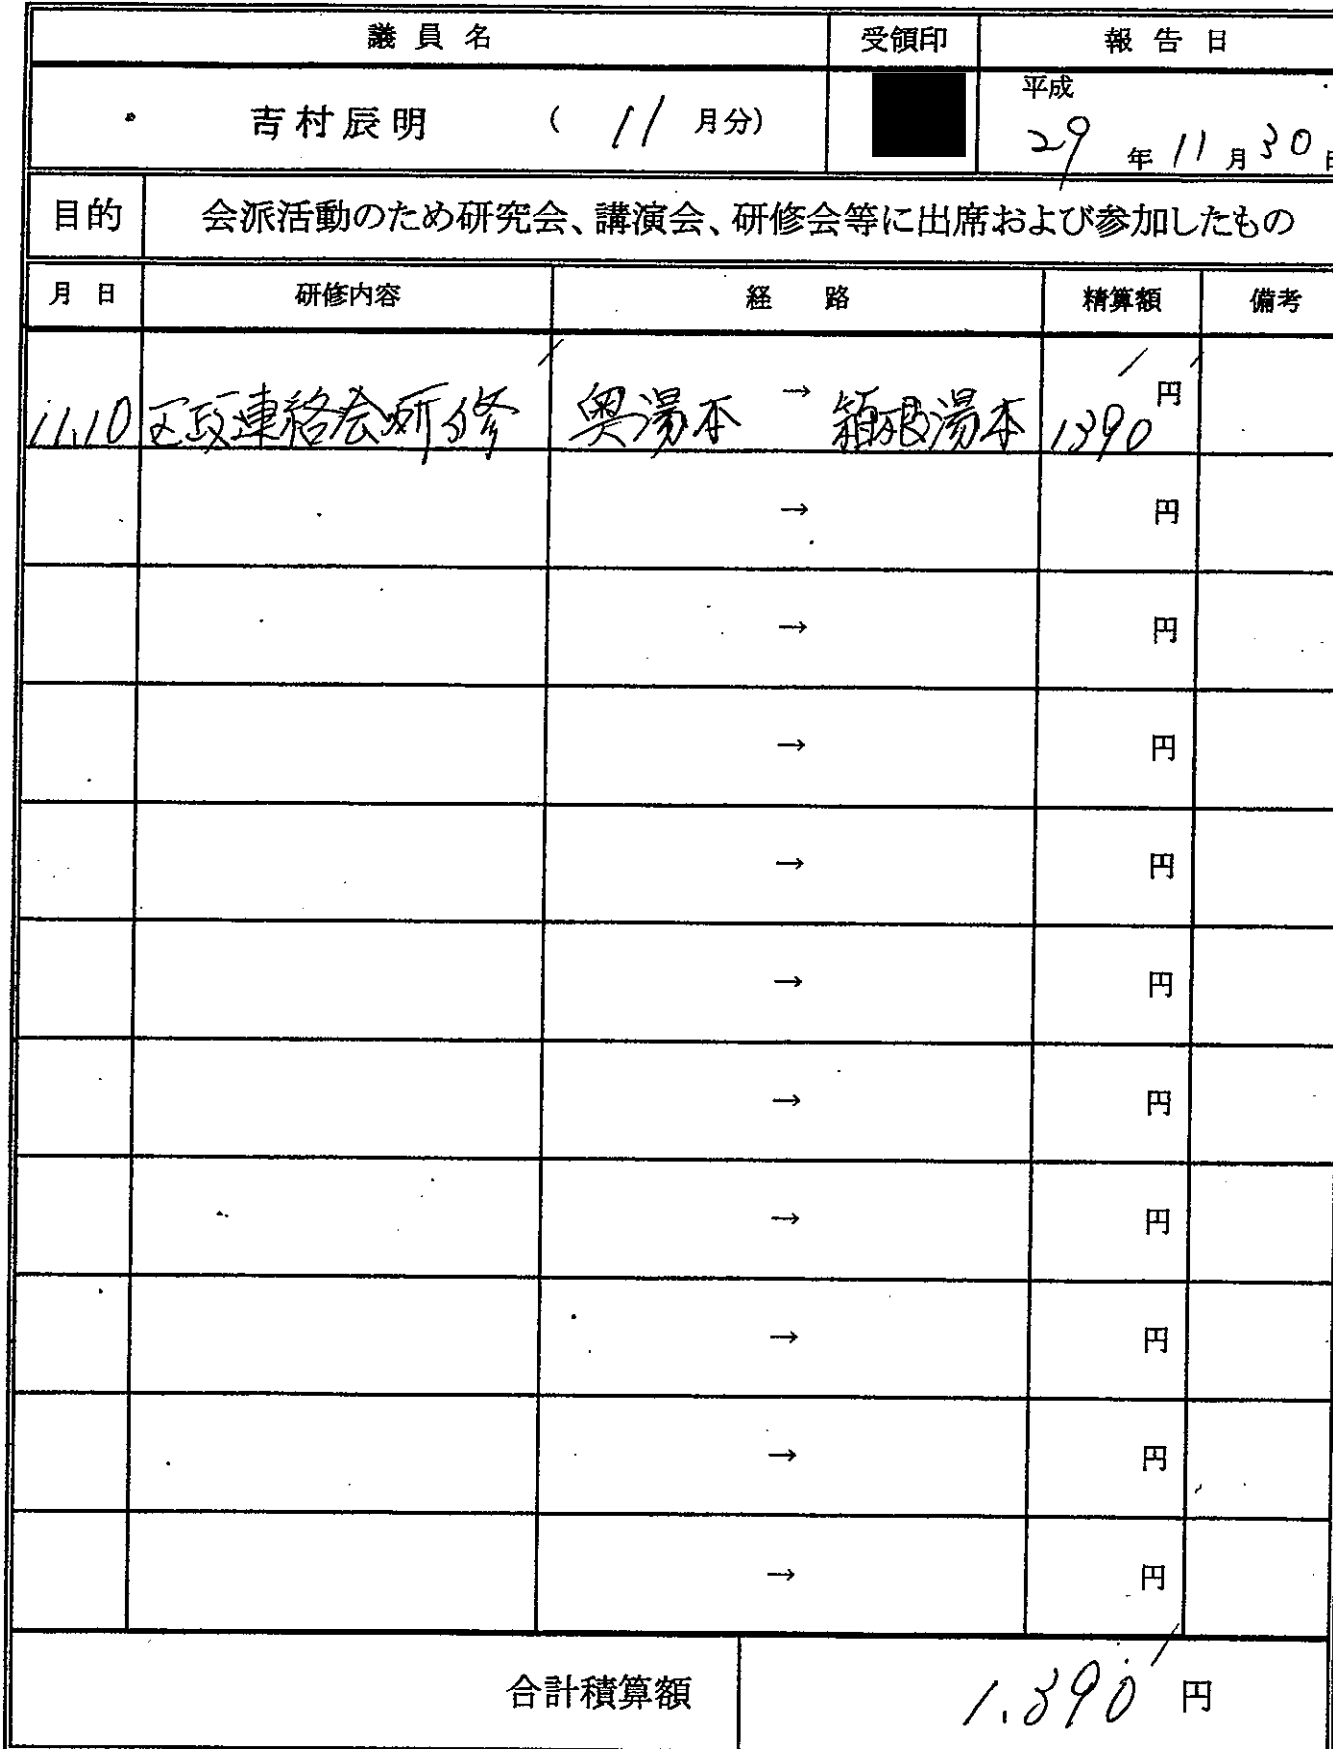 議員名 受領印 報告日
吉村辰明 ( 11 月分) 平成 29 年 11 月 30 日
目的 会派活動のため研究会、講演会、研修会等に出席および参加したもの
月 日 研修内容 経 路 精算額 備考
11.10 区政連絡会研修 奥湯本 → 箱根湯本 1390 円
→ 円
→ 円
→ 円
→ 円
→ 円
→ 円
→ 円
→ 円
→ 円
→ 円
合計積算額 1.390 円